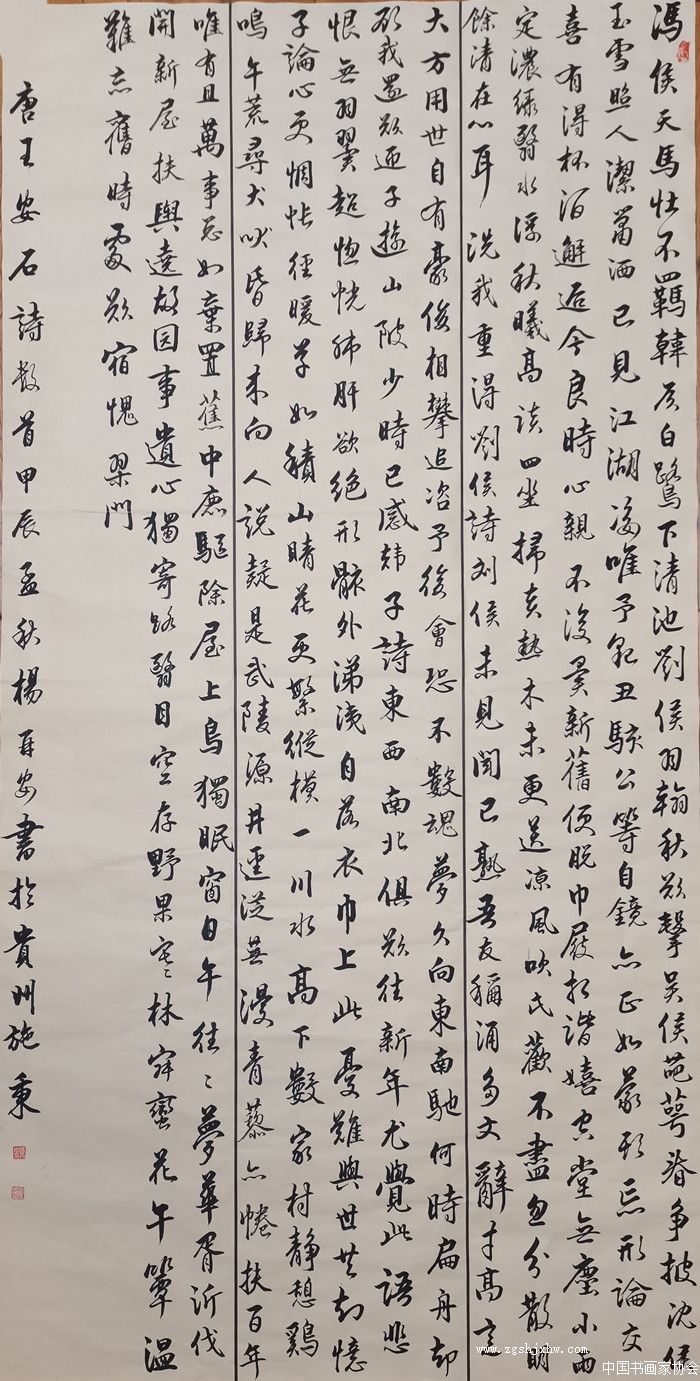 馮侯天馬壯不羈韓侯白鷺下清池劉侯羽翰秋欲擊吳侯葩萼春爭披沈侯
玉雪照人潔瀟洒已見江湖姿唯予貌丑駭公等自鏡亦正如蒙形忘形論交
喜有得杯酒邂逅今良時心親不復異新舊便脫巾屐相諧嬉空堂無塵小雨
定濃綠翳水浮秋曦高談四坐掃炎熱木末更送凉風吹此歡不盡忽分散明
餘清在心耳洗我重得劉侯詩刘侯未見聞已熟吾友稱誦多文辭才高意
大方用世自有豪俊相攀追咨予後會恐不數魂夢久向東南馳何時扁舟却
顧我還欲迎子遊山陂少時已感韩子詩東西南北俱欲往新年尤覺此語悲
恨無羽翼超惚恍肺肝欲絕形骸外涕洟自落衣巾上此憂難與世共知憶
子論心更惆悵径暖草如積山晴花更繁縱橫一川水高下數家村静憩鷄
鳴午荒尋犬吠昏歸來向人說疑是武陵源井逕從蕪漫青藜亦倦扶百年
唯有且萬事忘如棄置蕉中鹿驅除屋上烏獨眠窗日午往ミ夢華胥近代
開新屋扶輿遶故园事遺心獨寄路翳目空存野果寒林寂蠻花午簟温
難忘舊時處欲宿愧翠門
唐王安石詩數首甲辰孟秋楊再安書於貴州施秉
www.zgshjxhw.com
中国书画家协会